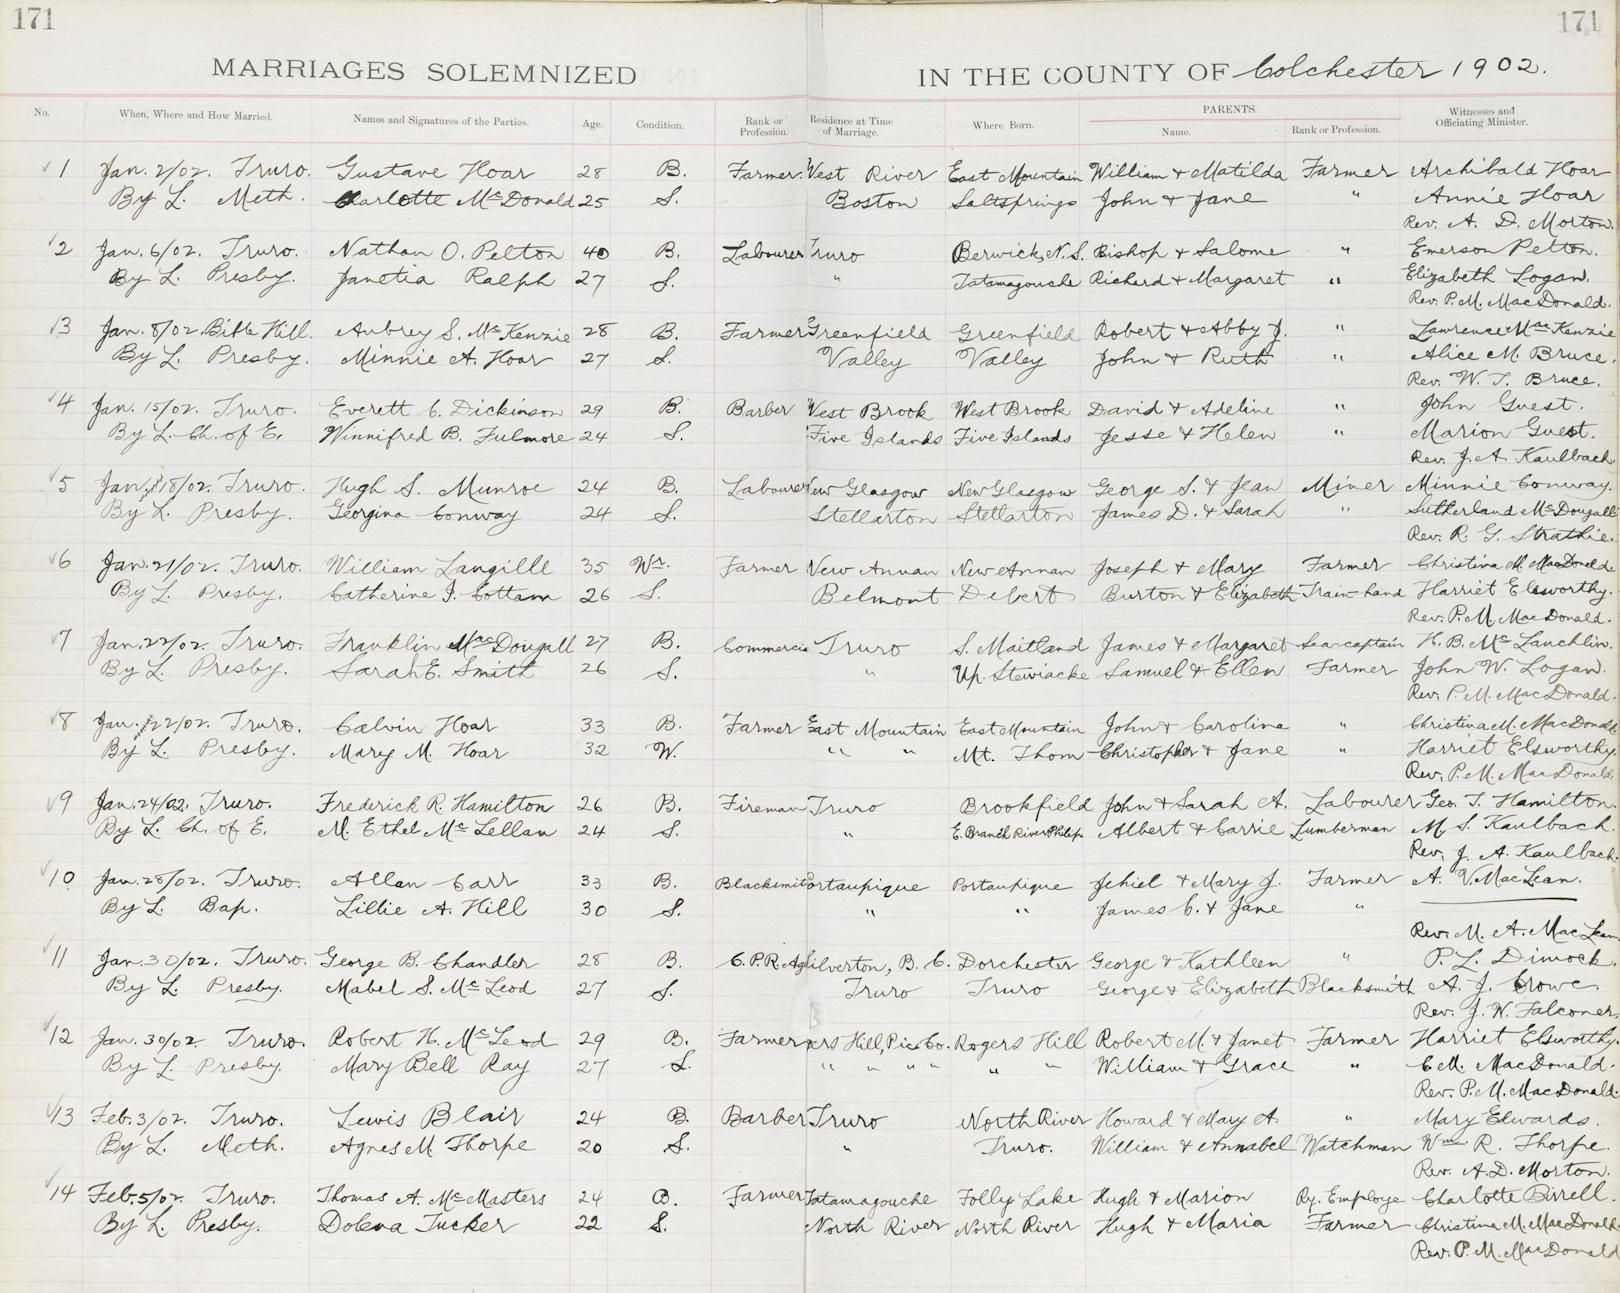 171 171
MARRIAGES SOLEMNIZED IN THE COUNTY OF Colchester 1902.
No. When, Where and How Married. Names and Signatures of the Parties. Age. Condition. Rank or Profession. Residence at Time of Marriage. Where Born. PARENTS. Name. Rank or Profession. Witnesses and Officiating Minister.
1 Jan. 2/02. Truro. Gustave Hoar 28 B. Farmer. West River East Mountain William & Matilda Farmer Archibald Hoar
By L. Meth. Charlotte McDonald 25 S. Boston Saltsprings John & Jane " Annie Hoar
Rev. A. D. Morton.
2 Jan. 6/02. Truro. Nathan O. Pelton 40 B. Labourer Truro Berwick, N.S. Bishop & Salome " Emerson Pelton.
By L. Presby. Janetia Ralph 27 S. " Tatamagouche Richard & Margaret " Elizabeth Logan.
Rev. P. M. MacDonald.
3 Jan. 8/02. Bible Hill. Aubrey S. McKenzie 28 B. Farmer Greenfield Greenfield Robert & Abby J. " Lawrence MacKenzie
By L. Presby. Minnie A. Hoar 27 S. Valley Valley John & Ruth " Alice M. Bruce.
Rev. W. T. Bruce.
4 Jan. 15/02. Truro. Everett C. Dickinson 29 B. Barber West Brook West Brook David & Adeline " John Guest.
By L. Ch. of E. Winnifred B. Fulmore 24 S. Five Islands Five Islands Jesse & Helen " Marion Guest.
Rev. J. A. Kaulbach
5 Jan. 18/02. Truro. Hugh S. Munroe 24 B. Labourer New Glasgow New Glasgow George S. & Jean Miner Minnie Conway.
By L. Presby. Georgina Conway 24 S. Stellarton Stellarton James D. & Sarah " Sutherland McDougall
Rev. R. G. Strathie.
6 Jan. 21/02. Truro. William Langille 35 Wr. Farmer New Annan New Annan Joseph & Mary Farmer Christina M. MacDonald.
By L. Presby. Catherine I. Cottam 26 S. Belmont Debert Burton & Elizabeth Train-hand Harriet Elsworthy.
Rev. P. M. MacDonald.
7 Jan. 22/02. Truro. Franklin MacDougall 27 B. Commercia Truro S. Maitland James & Margaret Sea-captain H. B. McLauchlin.
By L. Presby. Sarah E. Smith 26 S. " Up. Stewiacke Samuel & Ellen Farmer John W. Logan.
Rev. P. M. MacDonald.
8 Jan. 22/02. Truro. Calvin Hoar 33 B. Farmer East Mountain East Mountain John & Caroline " Christina M. MacDonald
By L. Presby. Mary M. Hoar 32 W. " " Mt. Thom Christopher & Jane " Harriet Elsworthy.
Rev. P. M. MacDonald.
9 Jan. 24/02. Truro. Frederick R. Hamilton 26 B. Fireman Truro Brookfield John & Sarah A. Labourer Geo. T. Hamilton.
By L. Ch. of E. M. Ethel McLellan 24 S. " E. Branch River Philip Albert & Carrie Lumberman M. S. Kaulbach.
Rev. J. A. Kaulbach.
10 Jan. 28/02. Truro. Allan Carr 33 B. Blacksmit Portaupique Portaupique Jehiel & Mary J. Farmer A. V. MacLean.
By L. Bap. Lillie A. Hill 30 S. " " James C. & Jane "
Rev. M. A. MacLean.
11 Jan. 30/02. Truro. George B. Chandler 28 B. C.P.R. Ag Silverton, B. C. Dorchester George & Kathleen " P. L. Dimock.
By L. Presby. Mabel S. McLeod 27 S. Truro Truro George & Elizabeth Blacksmith A. J. Crowe.
Rev. J. W. Falconer.
12 Jan. 30/02. Truro. Robert H. McLeod 29 B. Farmer ers Hill, Pic. Co. Rogers Hill Robert M. & Janet Farmer Harriet Elsworthy.
By L. Presby. Mary Bell Ray 27 S. " " " " " " William & Grace " C. M. MacDonald.
Rev. P. M. MacDonald.
13 Feb. 3/02. Truro. Lewis Blair 24 B. Barber Truro North River Howard & Mary A. " Mary Edwards.
By L. Meth. Agnes M Thorpe 20 S. " Truro. William & Annabel Watchman Wm R. Thorpe.
Rev. A. D. Morton.
14 Feb. 5/02. Truro. Thomas A. McMasters 24 B. Farmer Tatamagouche Folly Lake Hugh & Marion Ry. Employe Charlotte Birrell.
By L. Presby. Dolena Tucker 22 S. North River North River Hugh & Maria Farmer Christina M. MacDonald.
Rev. P. M. MacDonald